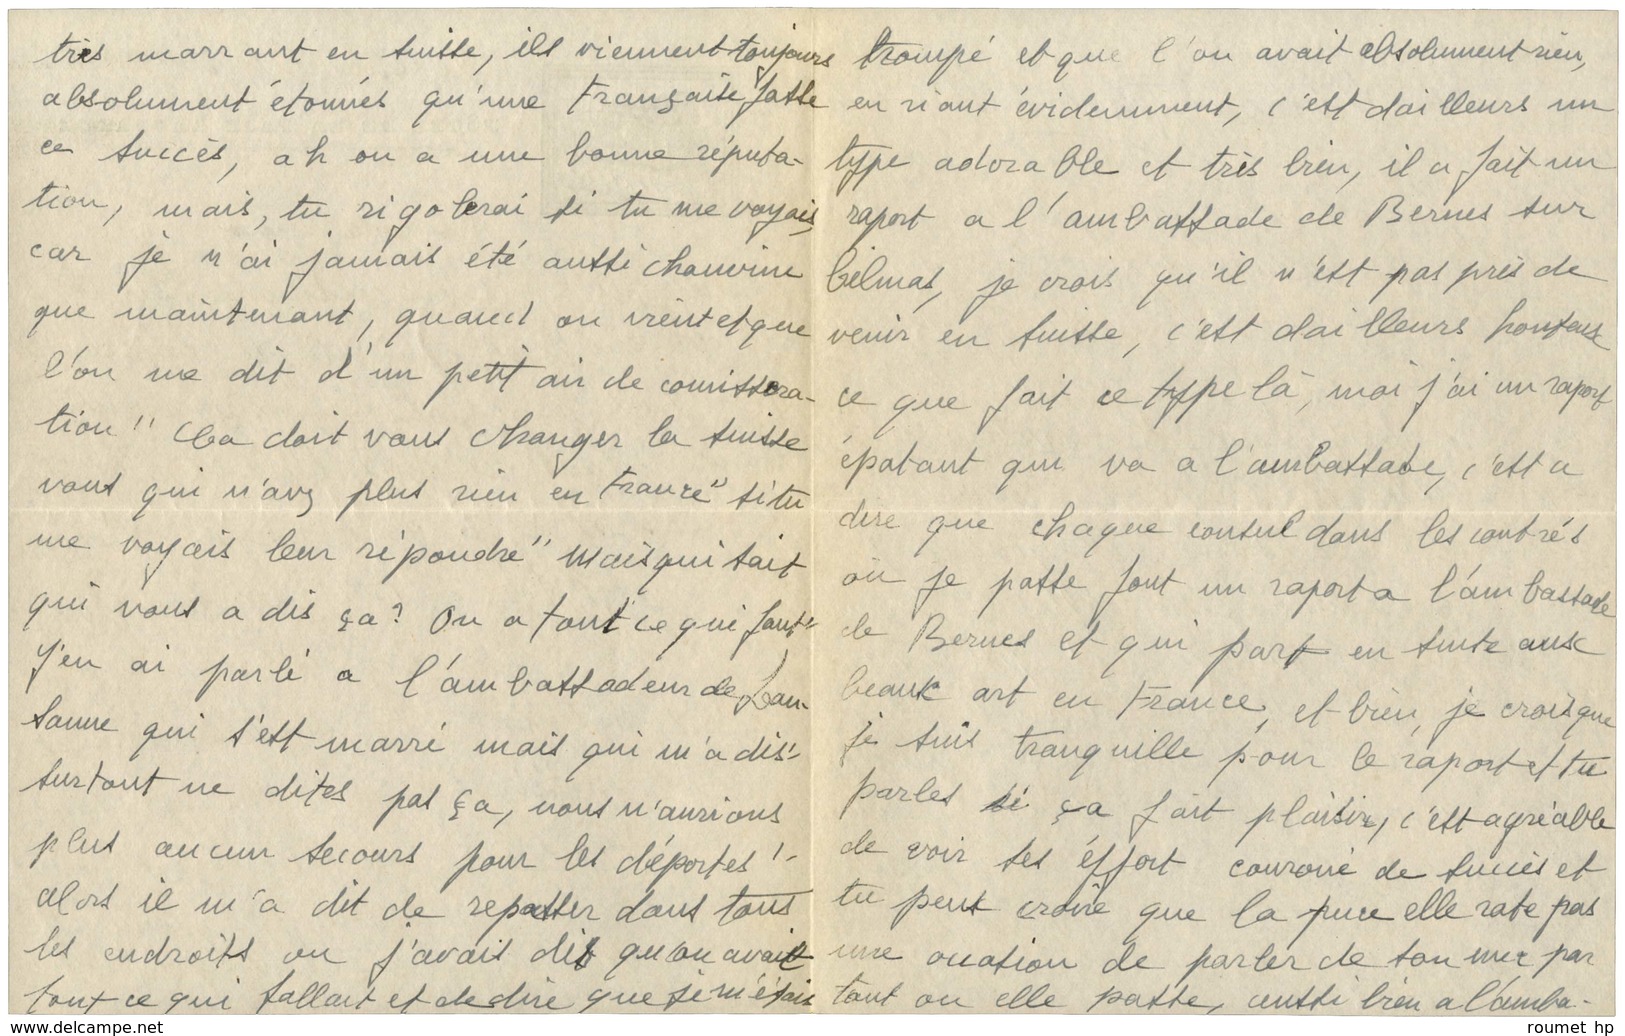 très marrant en suisse, ils viennent toujours
absolument étonnés qu'une Française fasse
ce succès, ah on a une bonne réputa-
tion, mais, tu rigolerai si tu me voyais,
car je n'ai jamais été aussi chauvine
que maintenant, quand on vient et que
l'on me dit d'un petit air de comissera-
tion " Ca doit vous changer la suisse
vous qui n'avez plus rien en France" si tu
me voyais leur répondre " Mais qui sait
qui vous a dis ça? On a tout ce qui faut"
J'en ai parlé a l'ambassadeur de Lau-
sanne qui s'est marré mais qui m'a dis'-
surtout ne dites pas ça, nous n'aurions
plus aucun secours pour les déportés'-
alors il m'a dit de repasser dans tous
les endroits ou j'avais dit qu'on avait
tout ce qui fallait et de dire que je m'étais
trompé et que l'on avait absolument rien,
en riant évidemment, c'est dailleurs un
type adorable et très bien, il a fait un
raport a l'ambassade de Bernes sur
belmas, je crois qu'il n'est pas près de
venir en suisse, c'est dailleurs honteux
ce que fait ce type là, moi j'ai un raport
épatant qui va a l'ambassade, c'est a
dire que chaque consul dans les contrés
où je passe font un raport a l'ambassade
de Bernes et qui part en suite aux
beaux art en France, et bien, je crois que
je suis tranquille pour le raport et tu
parles si ça fait plaisir, c'est agréable
de voir ses éffort couroné de succès et
tu peux croire que la puce elle rate pas
une ocasion de parler de ton mec par
tout ou elle passe, aussi bien a l'amba-
roumet hp